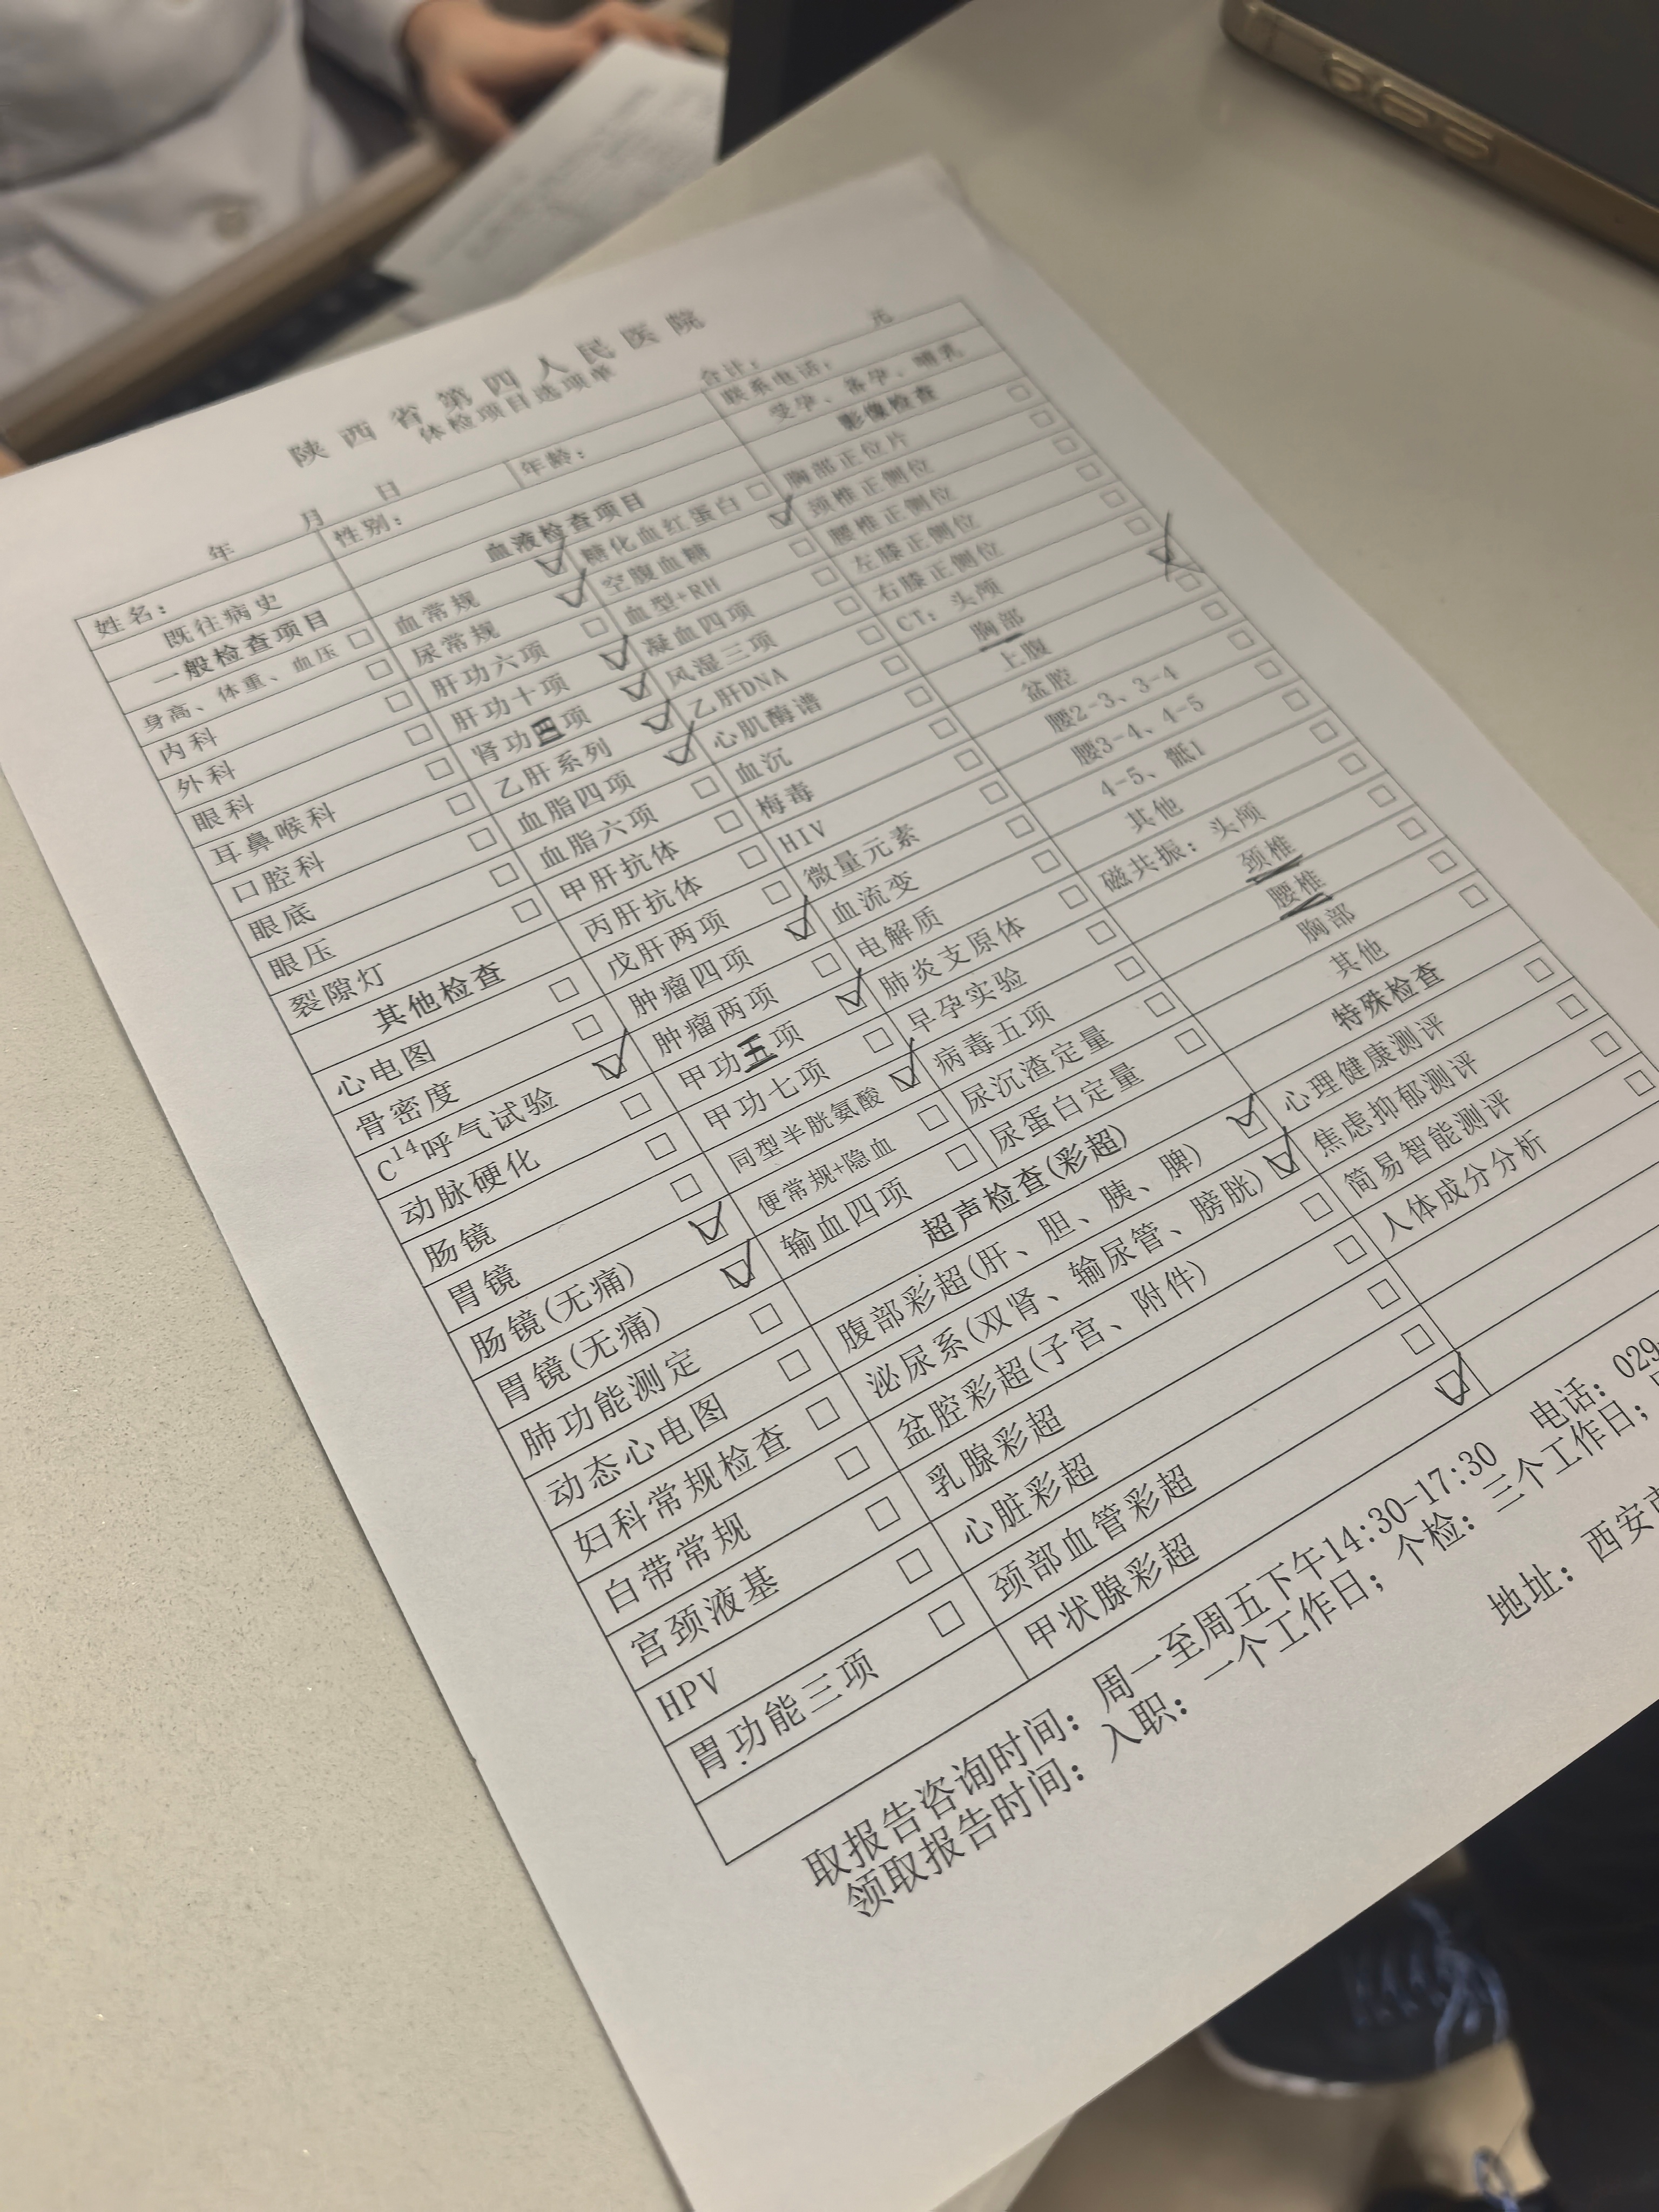 陕西省第四人民医院
体检项目选项单
年 月 日 合计: 元
姓名: 性别: 年龄: 联系电话:
既往病史 受孕、备孕、哺乳
一般检查项目 血液检查项目 影像检查
身高、体重、血压 □
内科 □
外科 □
眼科 □
耳鼻喉科 □
口腔科 □
眼底 □
眼压 □
裂隙灯 □
其他检查
心电图 □
骨密度 □
C14呼气试验 ☑
动脉硬化 □
肠镜 □
胃镜 □
肠镜(无痛) ☑
胃镜(无痛) ☑
肺功能测定 □
动态心电图 □
妇科常规检查 □
白带常规 □
宫颈液基 □
HPV □
胃功能三项 □
血常规 ☑
尿常规 ☑
肝功六项 □
肝功十项 ☑
肾功四项 ☑
乙肝系列 ☑
血脂四项 ☑
血脂六项 □
甲肝抗体 □
丙肝抗体 □
戊肝两项 □
肿瘤四项 ☑
肿瘤两项 □
甲功五项 ☑
甲功七项 □
同型半胱氨酸 ☑
便常规+隐血 □
输血四项 □
糖化血红蛋白 □
空腹血糖 ☑
血型+RH □
凝血四项 □
风湿三项 □
乙肝DNA □
心肌酶谱 □
血沉 □
梅毒 □
HIV □
微量元素 □
血流变 □
电解质 □
肺炎支原体 □
早孕实验 □
病毒五项 □
尿沉渣定量 □
尿蛋白定量 □
超声检查(彩超)
腹部彩超(肝、胆、胰、脾) ☑
泌尿系(双肾、输尿管、膀胱) ☑
盆腔彩超(子宫、附件) □
乳腺彩超 □
心脏彩超 □
颈部血管彩超 □
甲状腺彩超 ☑
胸部正位片 □
颈椎正侧位 □
腰椎正侧位 □
左膝正侧位 □
右膝正侧位 □
CT: 头颅 □
胸部 ☑
上腹 □
盆腔 □
腰2-3、3-4 □
腰3-4、4-5 □
4-5、骶1 □
其他 □
磁共振: 头颅 □
颈椎 □
腰椎 □
胸部 □
其他 □
特殊检查
心理健康测评 □
焦虑抑郁测评 □
简易智能测评 □
人体成分分析 □
取报告咨询时间: 周一至周五下午14:30-17:30 电话: 029
领取报告时间: 入职: 一个工作日; 个检: 三个工作日;
地址: 西安